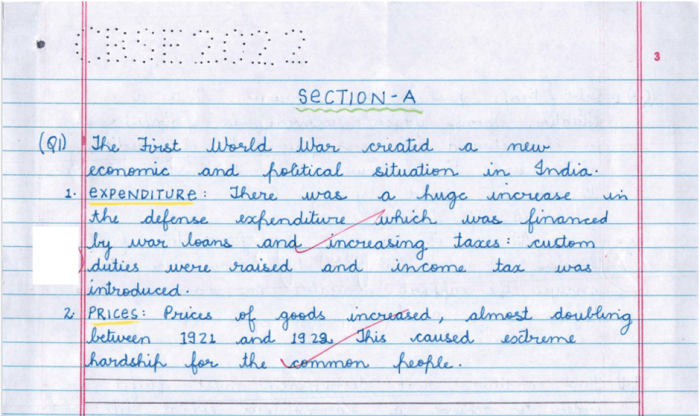 CBSE2022
3
SECTION-A
(Q1) The First World War created a new
economic and political situation in India.
1. EXPENDITURE: There was a huge increase in
the defense expenditure which was financed
by war loans and increasing taxes: custom
duties were raised and income tax was
introduced.
2. PRICES: Prices of goods increased, almost doubling
between 1921 and 1922. This caused extreme
hardship for the common people.